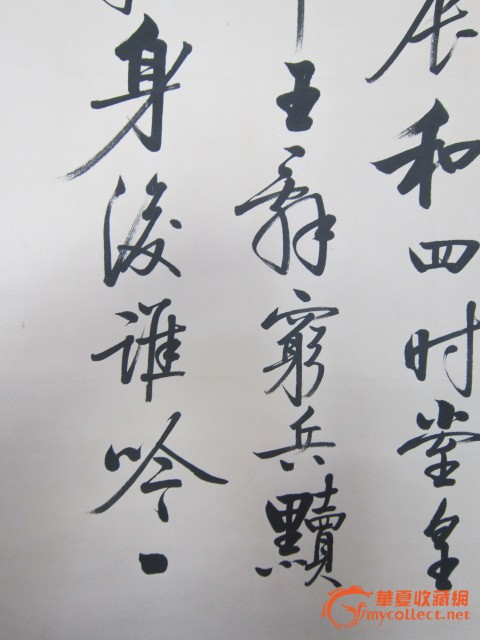 和四时堂皇
王辞窮兵黷
身後谁吟一
華夏收藏網
mycollect.net